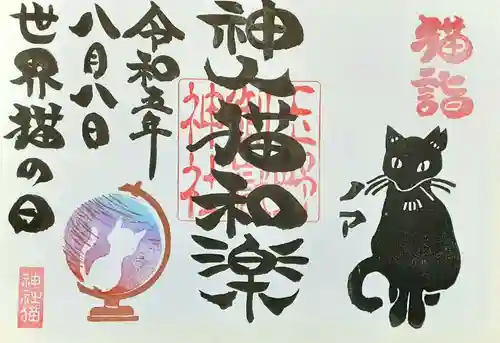 猫詣
ノア
神人猫和楽
神社
令和五年
八月八日
世界猫の日
神社猫